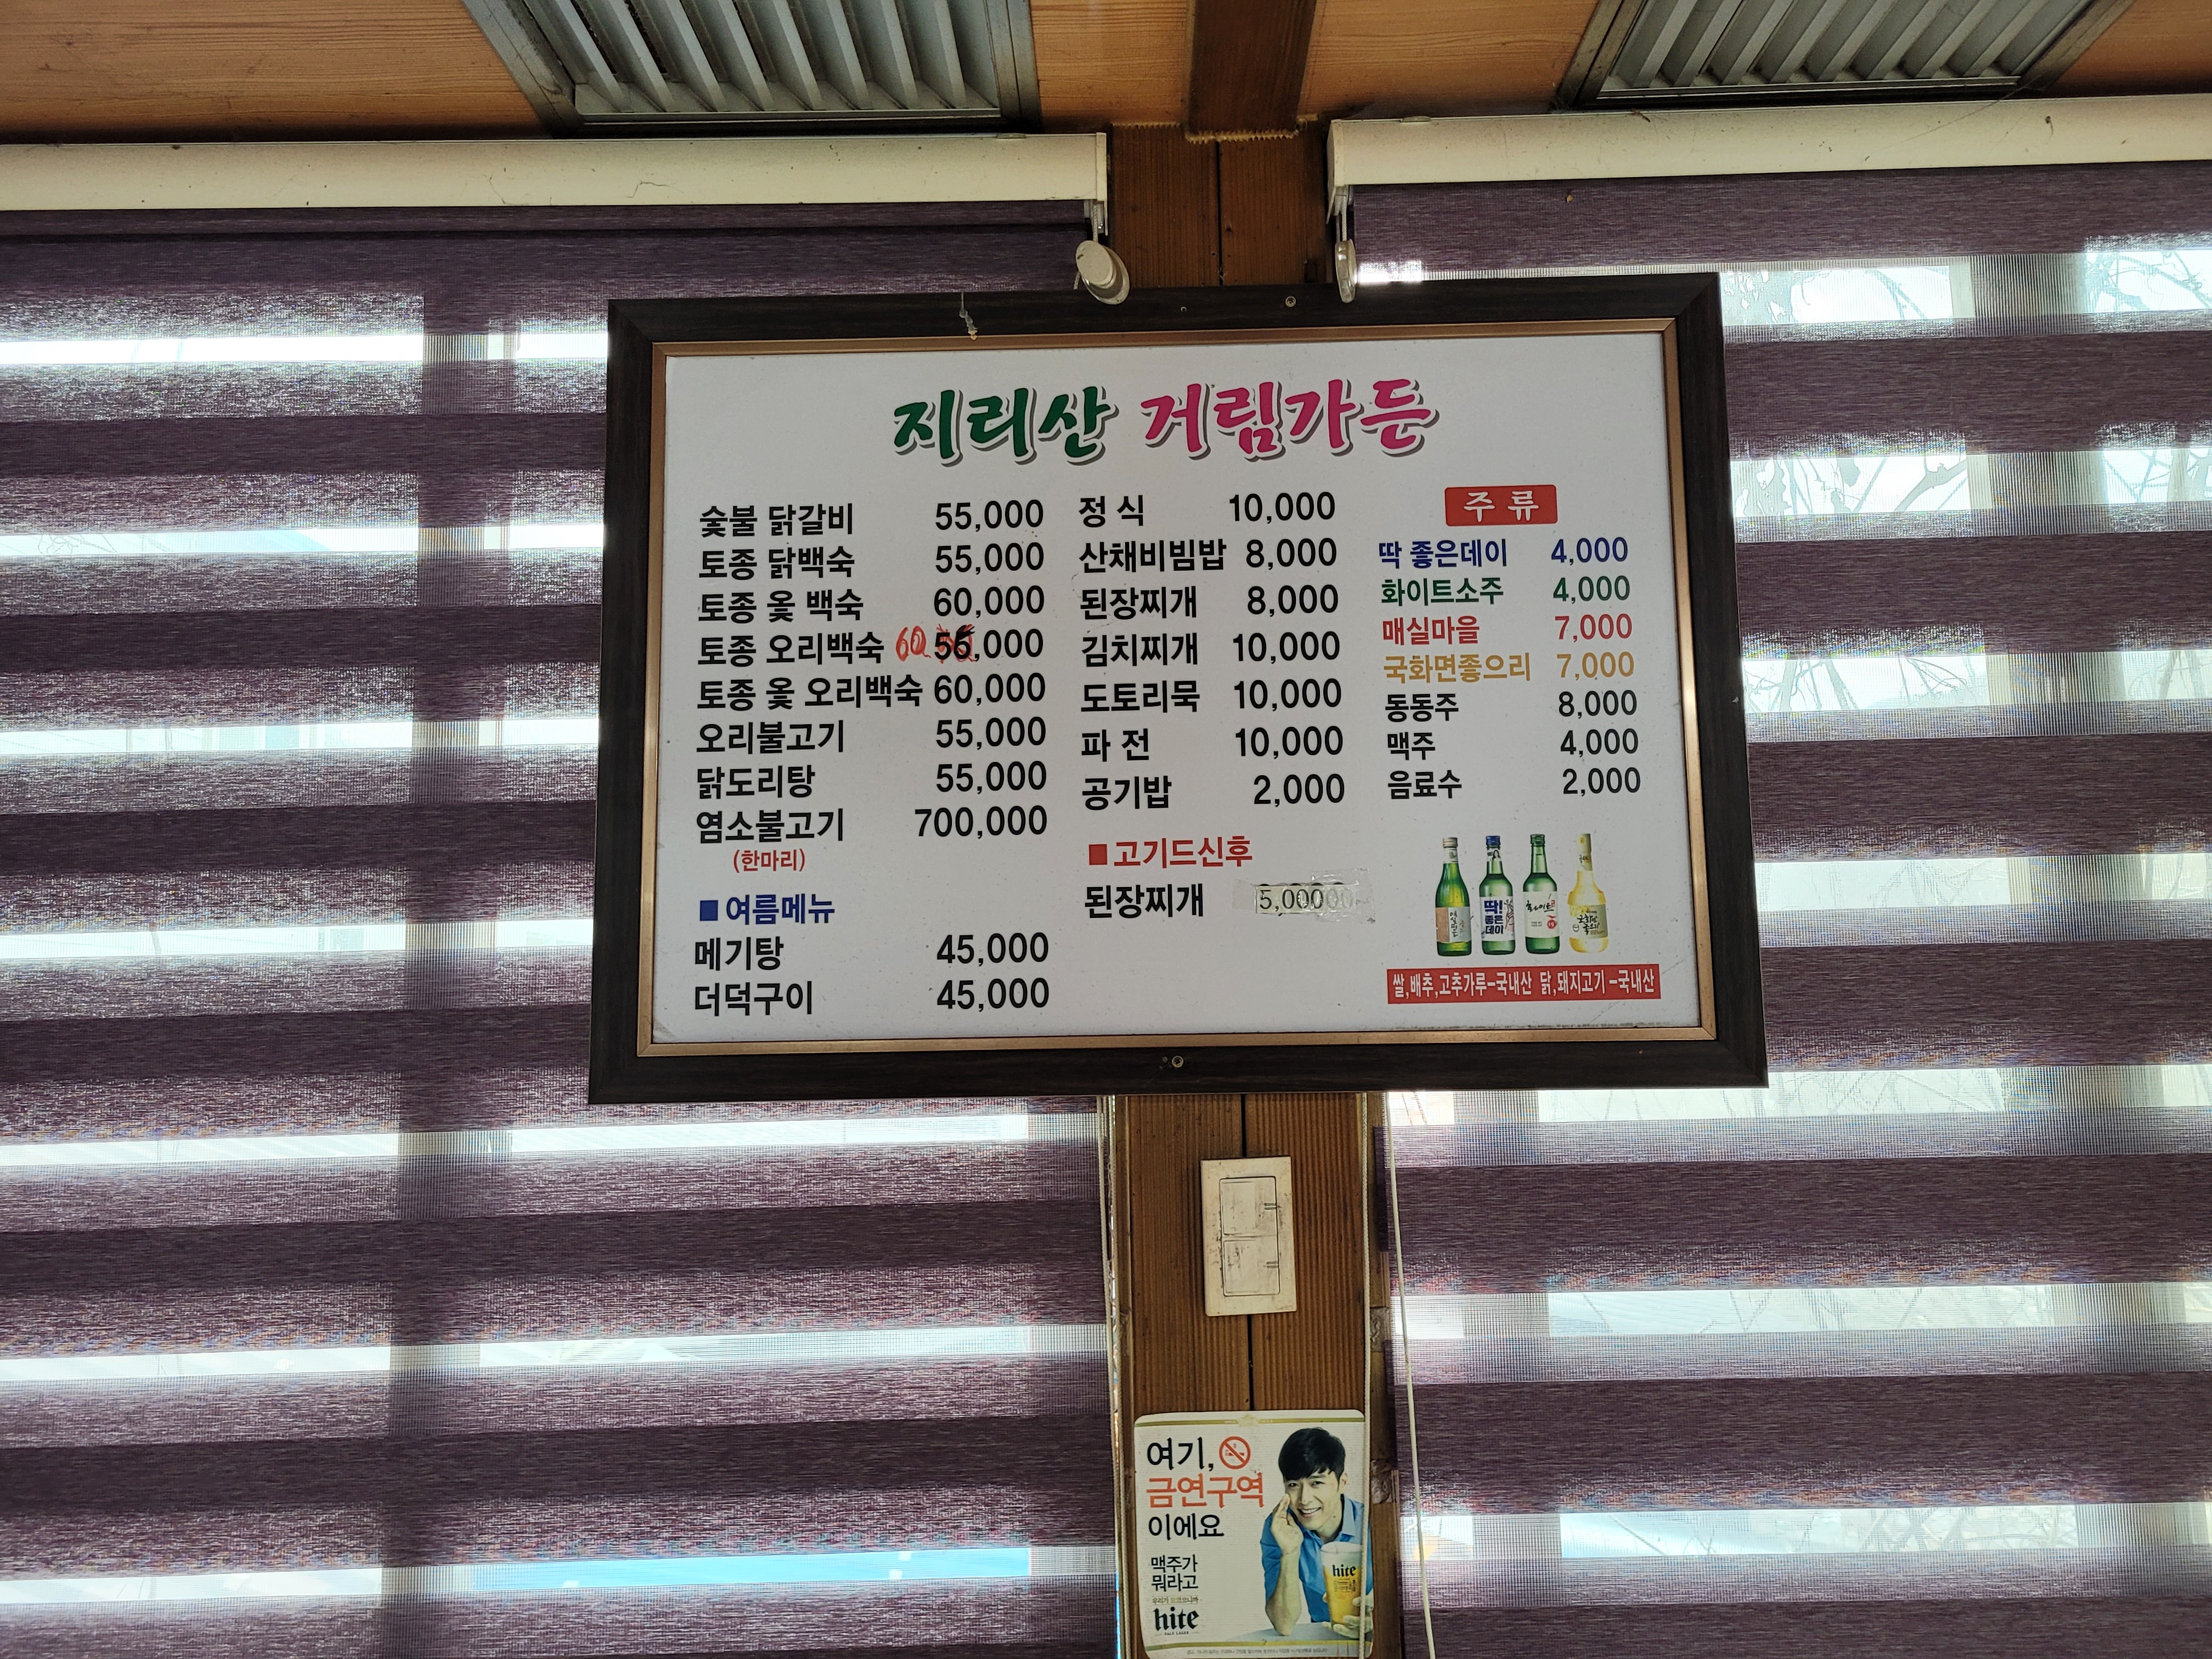 지리산 거림가든
숯불 닭갈비 55,000
토종 닭백숙 55,000
토종 옻 백숙 60,000
토종 오리백숙 60 55,000
토종 옻 오리백숙 60,000
오리불고기 55,000
닭도리탕 55,000
염소불고기 700,000
(한마리)
■여름메뉴
메기탕 45,000
더덕구이 45,000
정 식 10,000
산채비빔밥 8,000
된장찌개 8,000
김치찌개 10,000
도토리묵 10,000
파 전 10,000
공기밥 2,000
■고기드신후
된장찌개 5,000
주 류
딱 좋은데이 4,000
화이트소주 4,000
매실마을 7,000
국화면좋으리 7,000
동동주 8,000
맥주 4,000
음료수 2,000
딱!
좋은
데이
쌀,배추,고추가루-국내산 닭,돼지고기-국내산
여기,
금연구역
이에요
맥주가
뭐라고
hite
hite